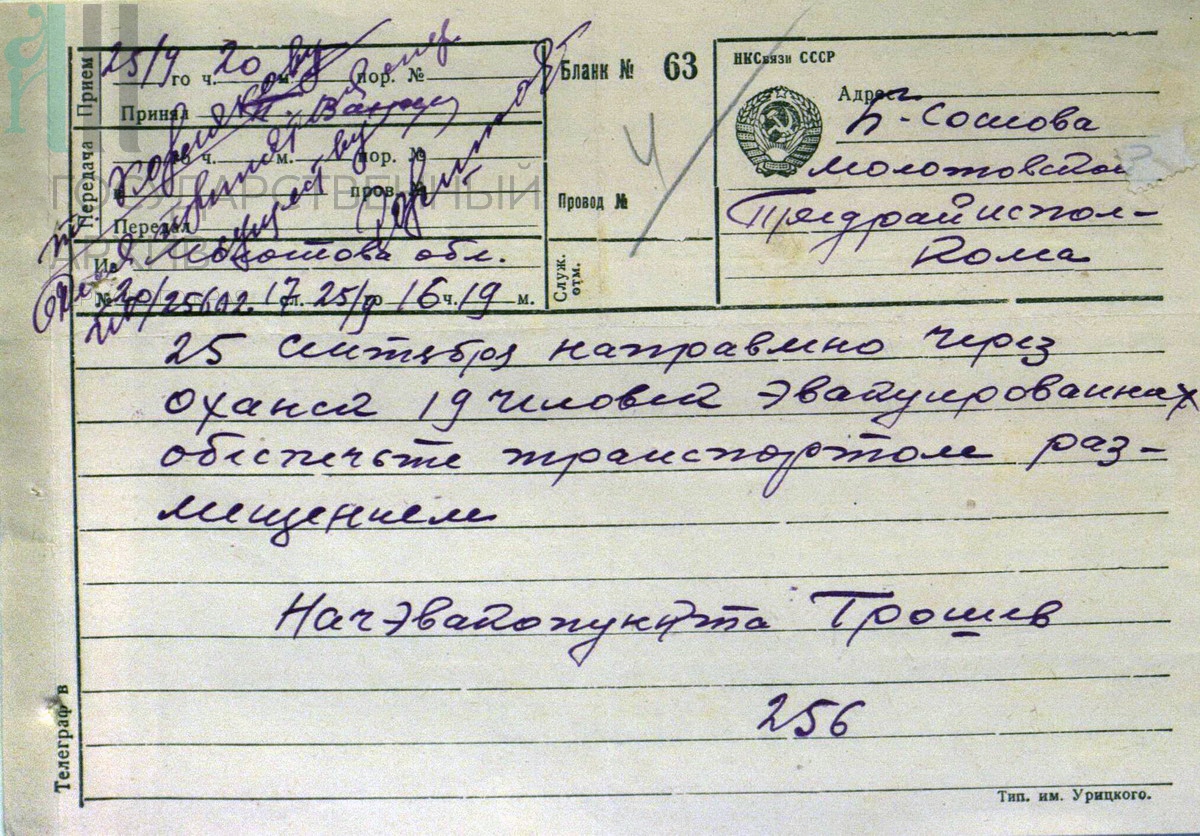 Прием
25/9 го ч. 20 м. пор. №
Принял
Передача
го ч. м. пор. №
пров. №
Передал
ГОСУДАРСТВЕННЫЙ
АРХИВ
Из Молотова обл.
№ 20/25612. 17 сл. 25/9 го 16 ч. 19 м.
Бланк № 63
Провод №
Служ. отм.
НКСвязи СССР
Адрес
Б-Соснова
Молотовской
Предрайиспол-
кома
25 сентября направлено через
Оханск 19 человек эвакуированных
обеспечьте транспортом раз-
мещением
НачЭвакопункта Трошев
256
Телеграф в
Тип. им. Урицкого.